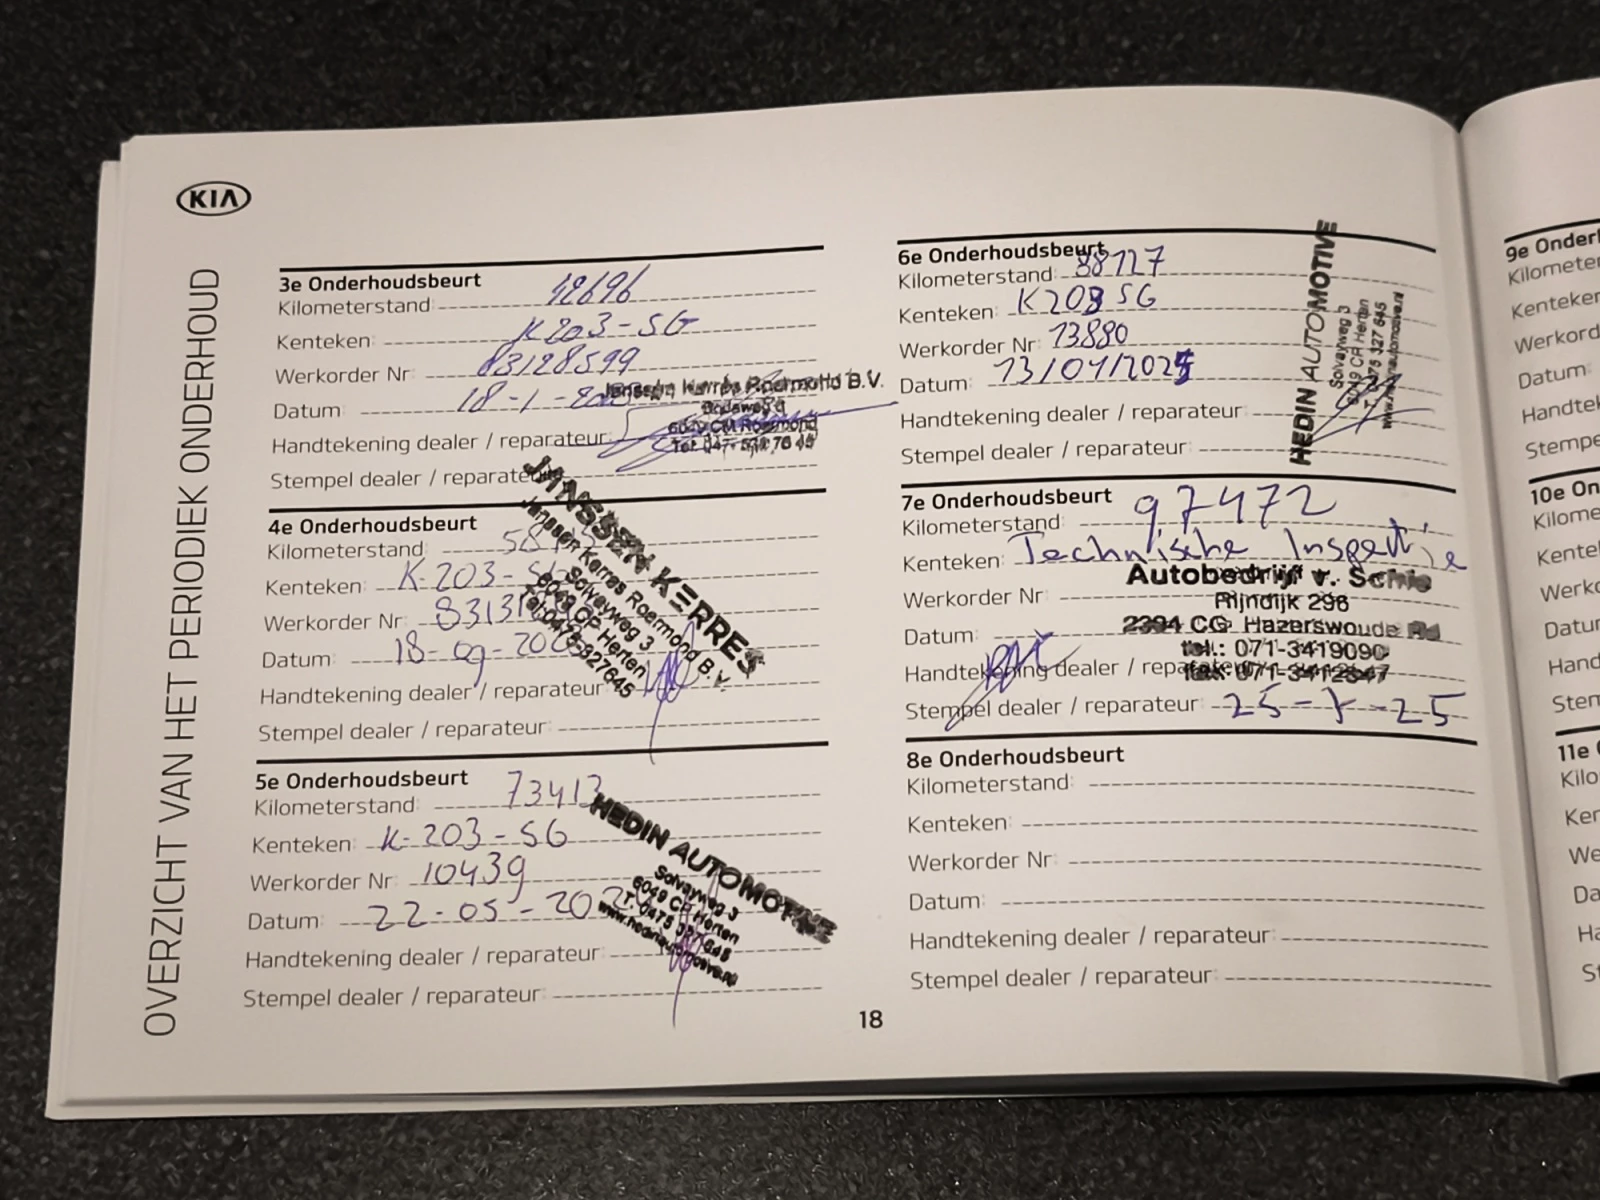 KIA
OVERZICHT VAN HET PERIODIEK ONDERHOUD
3e Onderhoudsbeurt
Kilometerstand: 42696
Kenteken: K 203-SG
Werkorder Nr: 83128599
Datum: 18-1-
Handtekening dealer / reparateur:
Stempel dealer / reparateur:
Janssen Kerres Roermond B.V.
4e Onderhoudsbeurt
Kilometerstand:
Kenteken: K-203-
Werkorder Nr:
Datum: 18-09-
Handtekening dealer / reparateur:
Stempel dealer / reparateur:
JANSSEN KERRES
Janssen Kerres Roermond B.V.
Solvayweg 3
6049 CP Herten
Tel:0475-327645
5e Onderhoudsbeurt
Kilometerstand: 73413
Kenteken: K-203-SG
Werkorder Nr: 10439
Datum: 22-05-
Handtekening dealer / reparateur:
Stempel dealer / reparateur:
HEDIN AUTOMOTIVE
Solvayweg 3
6049 CP Herten
T. 0475 327 645
www.hedinautomotive.nl
6e Onderhoudsbeurt
Kilometerstand: 88127
Kenteken: K 203 SG
Werkorder Nr: 13880
Datum: 13/01/2025
Handtekening dealer / reparateur:
Stempel dealer / reparateur:
HEDIN AUTOMOTIVE
Solvayweg 3
6049 CP Herten
T. 0475 327 645
www.hedinautomotive.nl
7e Onderhoudsbeurt
Kilometerstand: 97472
Kenteken: Technische Inspectie
Werkorder Nr:
Datum:
Handtekening dealer / reparateur:
Stempel dealer / reparateur: 25-7-25
Autobedrijf v. Schie
Rijndijk 296
2394 CG Hazerswoude Rd
tel.: 071-3419090
fax: 071-3412847
8e Onderhoudsbeurt
Kilometerstand:
Kenteken:
Werkorder Nr:
Datum:
Handtekening dealer / reparateur:
Stempel dealer / reparateur:
18
9e
10e
11e